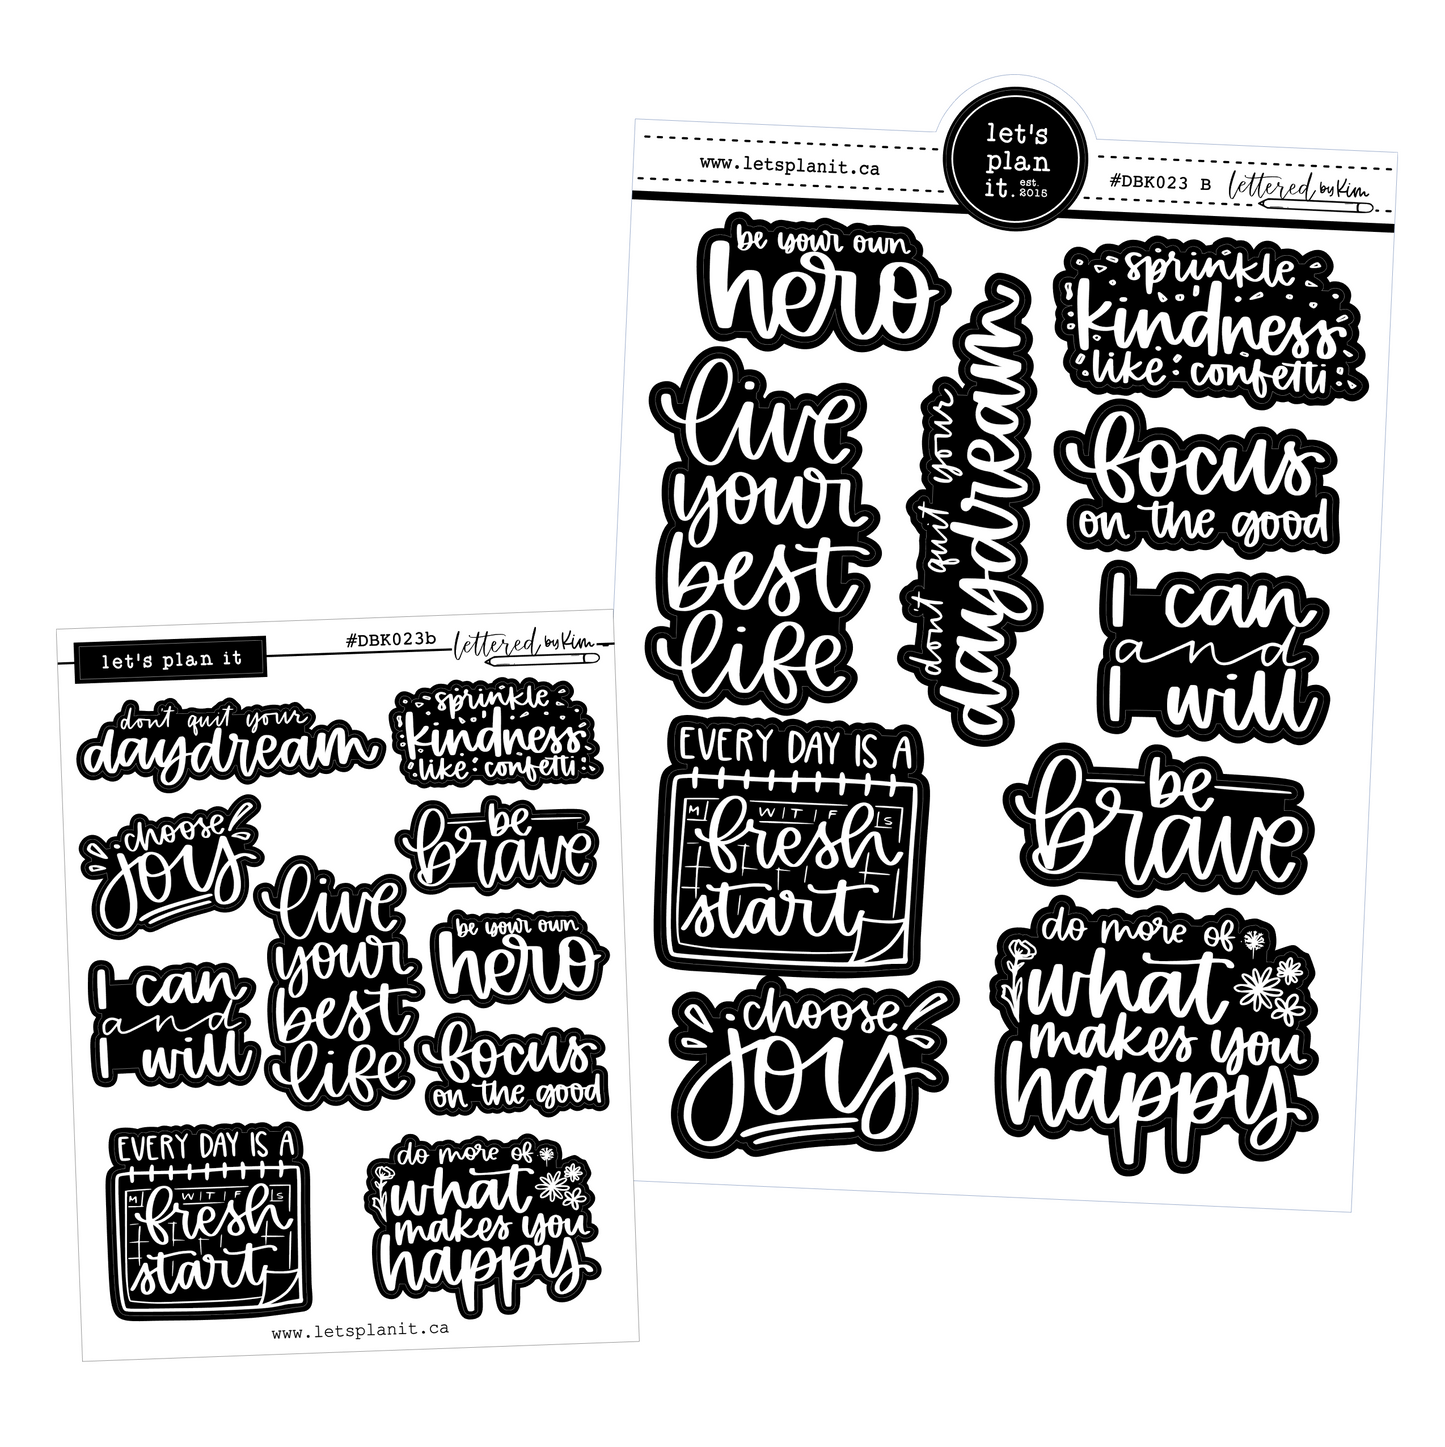 let's
plan
it. est.
2015
www.letsplanit.ca
#DBK023 B
lettered by Kim
be your own
hero
sprinkle
kindness
like confetti
live
your
best
life
don't quit your
daydream
focus
on the good
I can
and
I will
EVERY DAY IS A
M W T F S
fresh
start
be
brave
choose
joy
do more of
what
makes you
happy
let's plan it
#DBK023b
lettered by Kim
dont quit your
daydream
sprinkle
kindness
like confetti
choose
joy
be
brave
live
your
best
life
be your own
hero
I can
and
I will
focus
on the good
EVERY DAY IS A
M W T F S
fresh
start
do more of
what
makes you
happy
www.letsplanit.ca